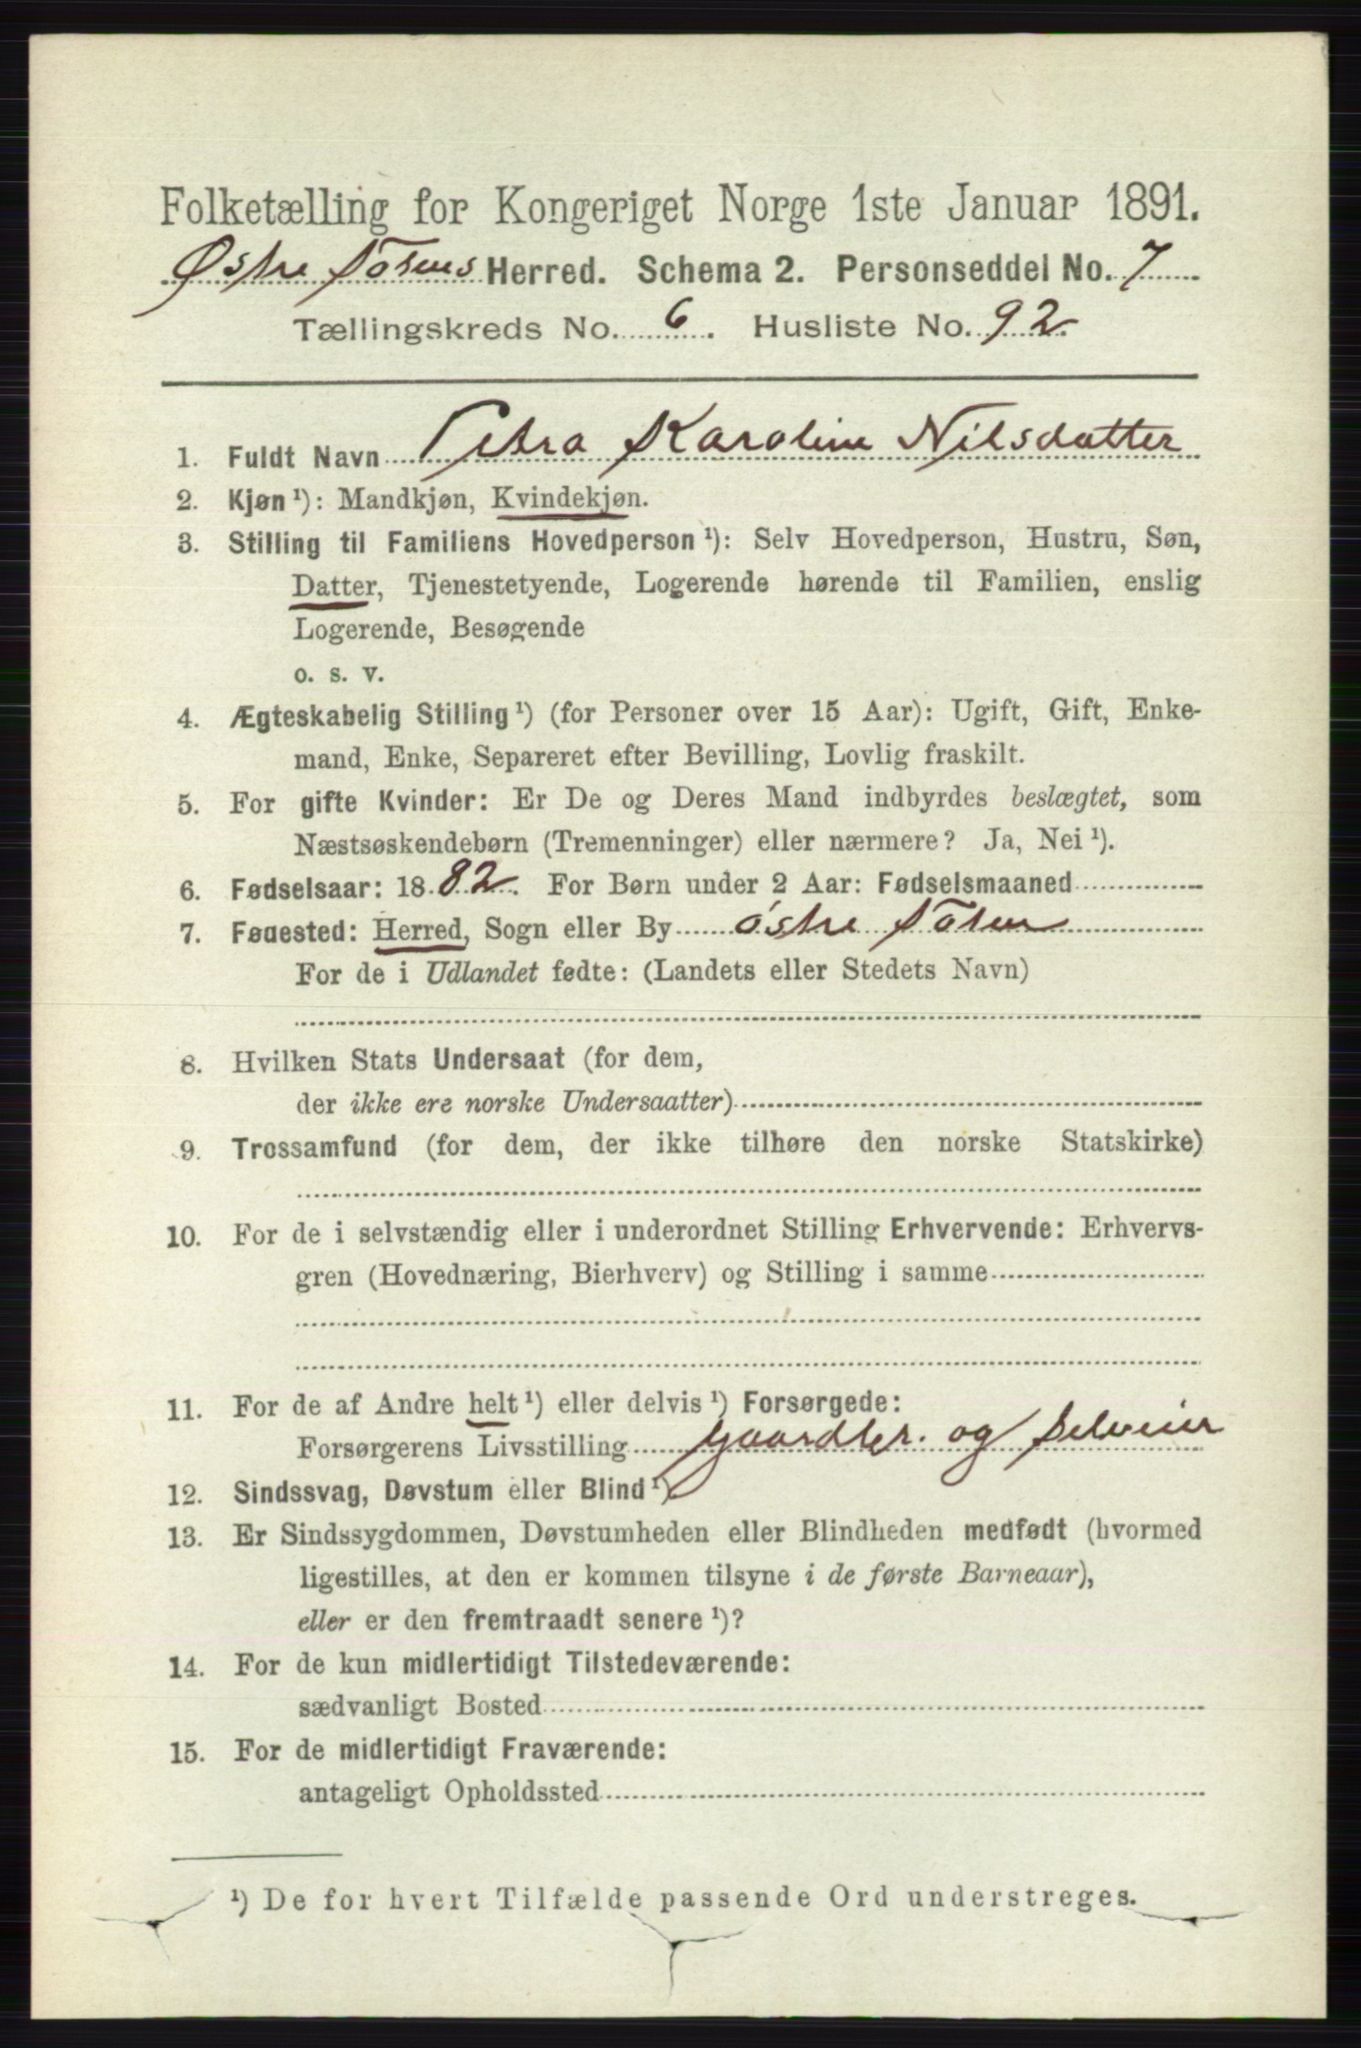 Folketælling for Kongeriget Norge 1ste Januar 1891.
Østre Totens Herred. Schema 2. Personseddel No. 7
Tællingskreds No. 6. Husliste No. 92.
1. Fuldt Navn Petra Karoline Nilsdatter
2. Kjøn ¹): Mandkjøn, Kvindekjøn.
3. Stilling til Familiens Hovedperson ¹): Selv Hovedperson, Hustru, Søn,
Datter, Tjenestetyende, Logerende hørende til Familien, enslig
Logerende, Besøgende
o. s. v.
4. Ægteskabelig Stilling ¹) (for Personer over 15 Aar): Ugift, Gift, Enke-
mand, Enke, Separeret efter Bevilling, Lovlig fraskilt.
5. For gifte Kvinder: Er De og Deres Mand indbyrdes beslægtet, som
Næstsøskendebørn (Tremenninger) eller nærmere? Ja, Nei ¹).
6. Fødselsaar: 1882. For Børn under 2 Aar: Fødselsmaaned
7. Fødested: Herred, Sogn eller By østre Toten
For de i Udlandet fødte: (Landets eller Stedets Navn)
8. Hvilken Stats Undersaat (for dem,
der ikke ere norske Undersaatter)
9. Trossamfund (for dem, der ikke tilhøre den norske Statskirke)
10. For de i selvstændig eller i underordnet Stilling Erhvervende: Erhvervs-
gren (Hovednæring, Bierhverv) og Stilling i samme
11. For de af Andre helt ¹) eller delvis ¹) Forsørgede:
Forsørgerens Livsstilling Gaardbr. og Selveier
12. Sindssvag, Døvstum eller Blind ¹)
13. Er Sindssygdommen, Døvstumheden eller Blindheden medfødt (hvormed
ligestilles, at den er kommen tilsyne i de første Barneaar),
eller er den fremtraadt senere ¹)?
14. For de kun midlertidigt Tilstedeværende:
sædvanligt Bosted
15. For de midlertidigt Fraværende:
antageligt Opholdssted
¹) De for hvert Tilfælde passende Ord understreges.